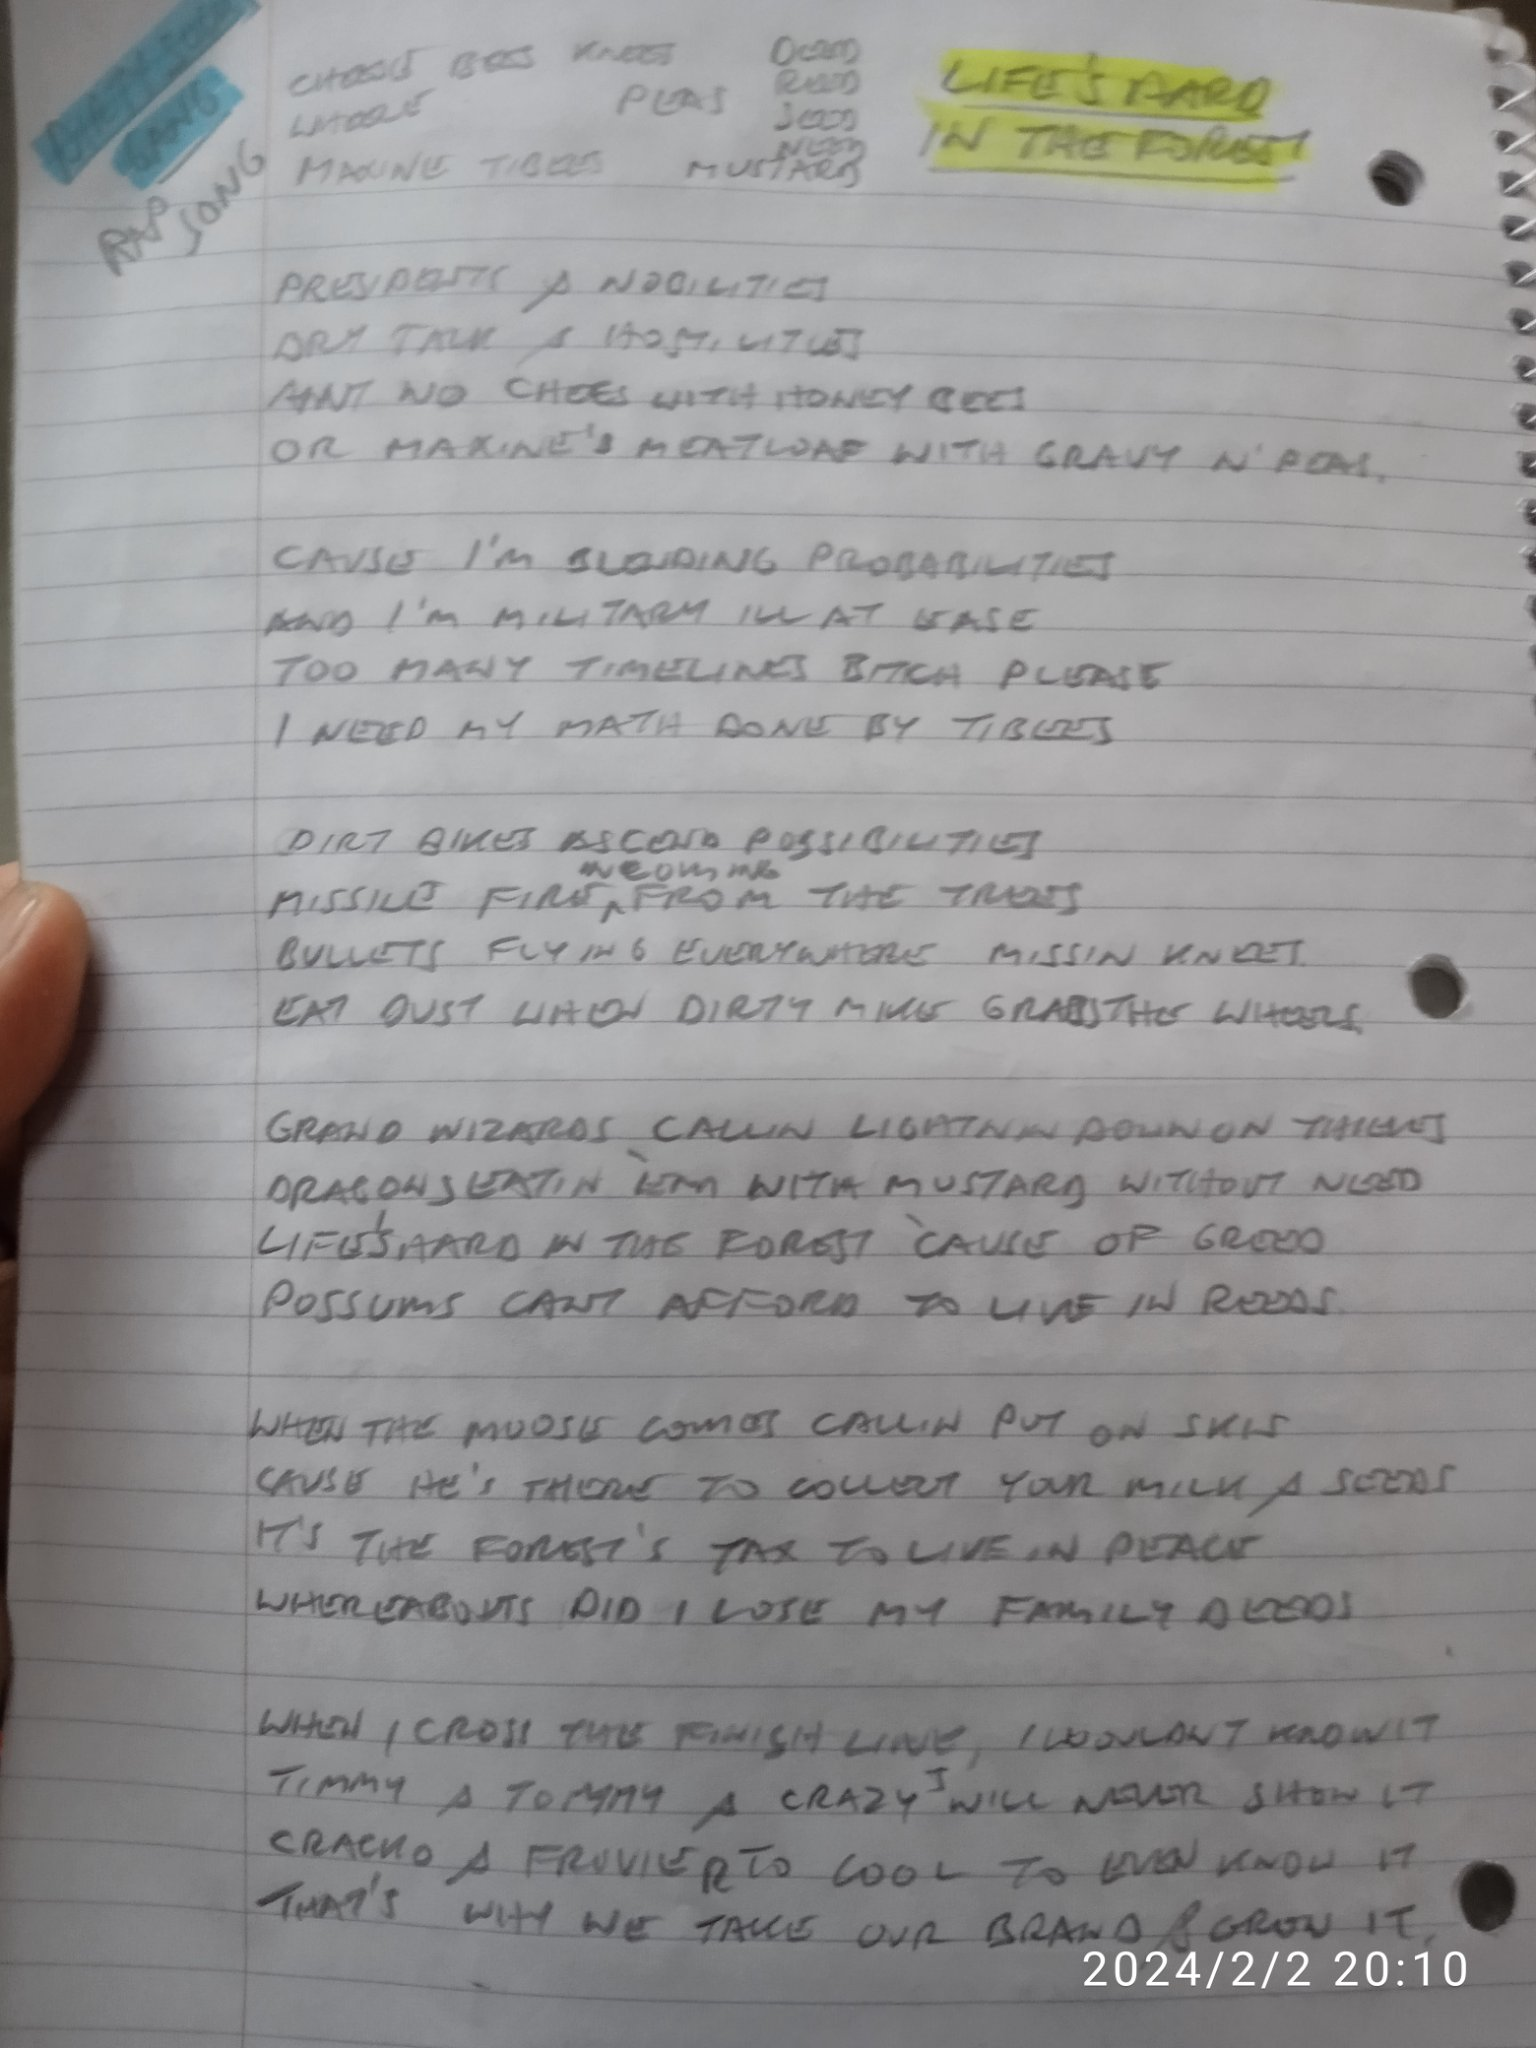 GANG
RAP
SONG
CHEESE BEES KNEES DEED
REED
WHORE PEAS SEED
NEED
MAXINE TIBEES MUSTARD
LIFE'S HARD
IN THE FOREST
PRESIDENTS & NOBILITIES
DRY TALK & HOSTILITIES
AINT NO CHEES WITH HONEY BEES
OR MAXINE'S MEATLOAF WITH GRAVY N' PEAS.
CAUSE I'M BLENDING PROBABILITIES
AND I'M MILITARY ILL AT EASE
TOO MANY TIMELINES BITCH PLEASE
I NEED MY MATH DONE BY TIBEES
DIRT BIKES ASCEND POSSIBILITIES
MISSILE FIRE INCOMING FROM THE TREES
BULLETS FLYING EVERYWHERE MISSIN KNEES
EAT DUST WHEN DIRTY MIKE GRABS THE WHEELS
GRAND WIZARDS CALLIN LIGHTNIN DOWN ON THIEVES
DRAGONS EATIN 'EM WITH MUSTARD WITHOUT NEED
LIFE'S HARD IN THE FOREST 'CAUSE OF GREED
POSSUMS CANT AFFORD TO LIVE IN REEDS
WHEN THE MOOSE COMES CALLIN PUT ON SKIS
CAUSE HE'S THERE TO COLLECT YOUR MILK & SEEDS
IT'S THE FOREST'S TAX TO LIVE IN PEACE
WHEREABOUTS DID I LOSE MY FAMILY DEEDS
WHEN I CROSS THE FINISH LINE, I WOULDNT KNOW IT
TIMMY & TOMMY & CRAZY J WILL NEVER SHOW IT
CRACKO & FRUVIER TO COOL TO EVEN KNOW IT
THAT'S WHY WE TAKE OUR BRAND & GROW IT.
2024/2/2 20:10